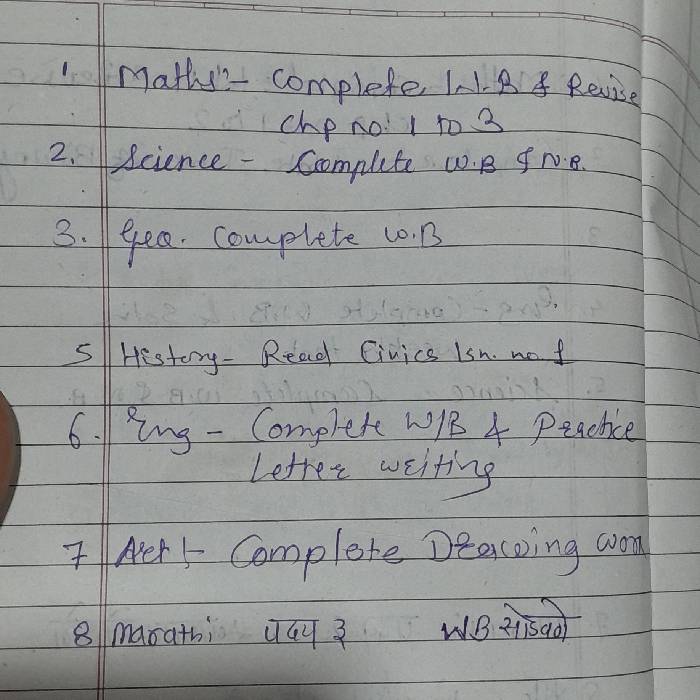 1. Maths:- Complete W.B & Revise
Chp no. 1 to 3
2. Science - Complete W.B & N.B.
3. Geo. Complete W.B
5 History - Read Civics lsn. no. 1
6. Eng - Complete W/B & Practice
Letter writing
7 Art :- Complete Drawing work
8 Marathi पद्य ३ WB सोडवणे